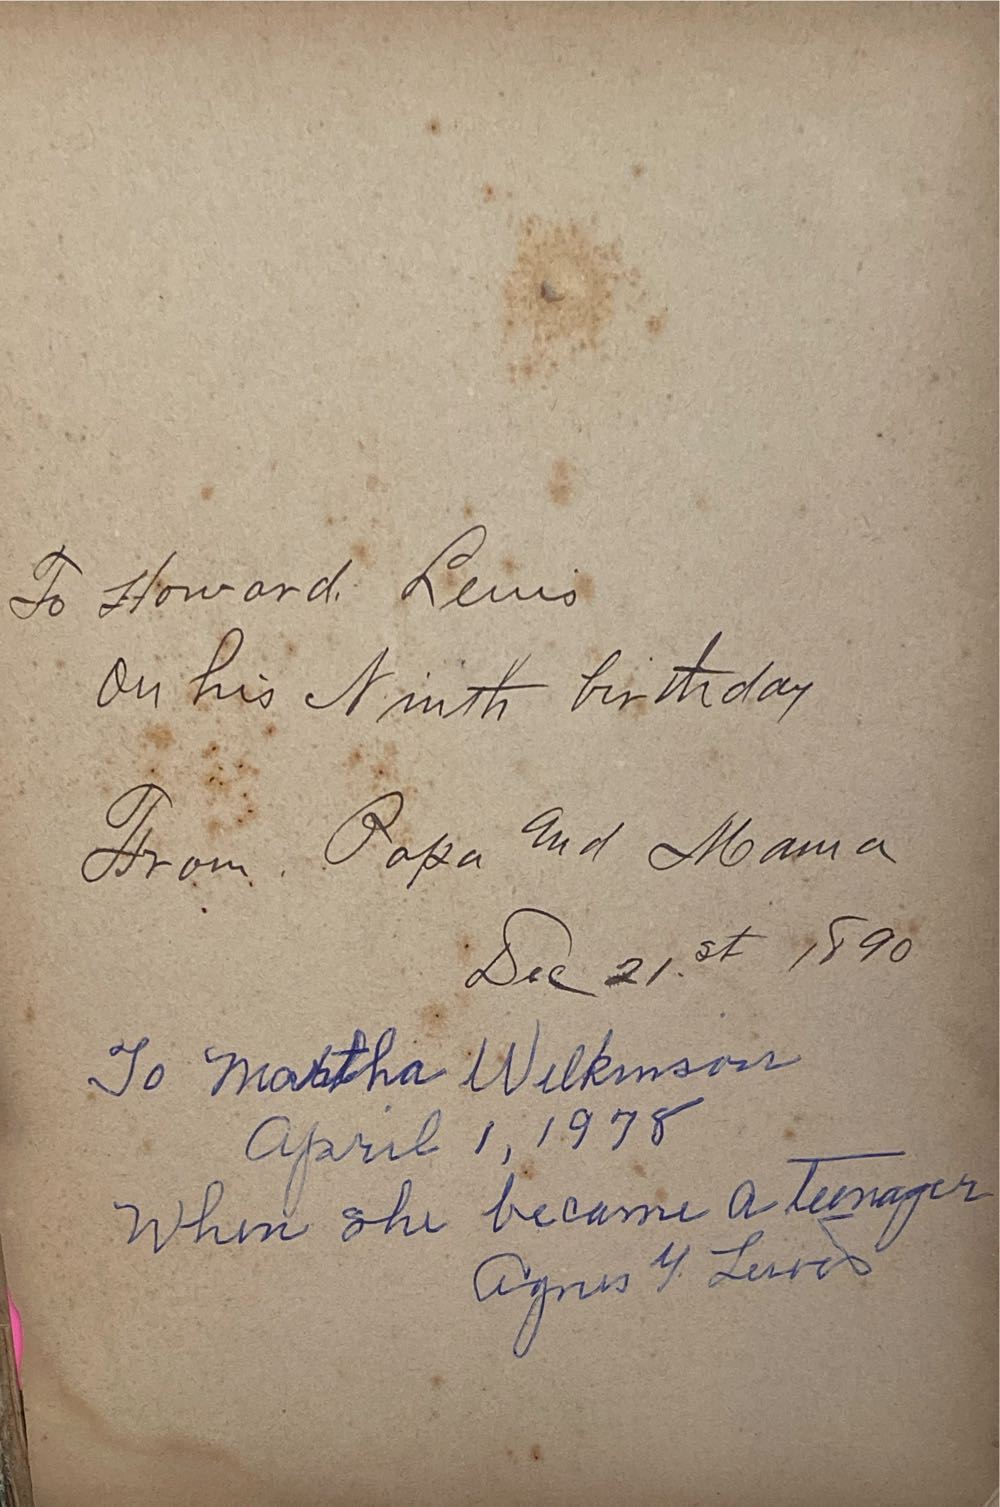 To Howard. Lewis
On his Ninth birthday
From. Papa and Mama
Dec 21.st 1890
To Martha Wilkinson
April 1, 1978
When she became a teenager
Agnes Y. Lewis